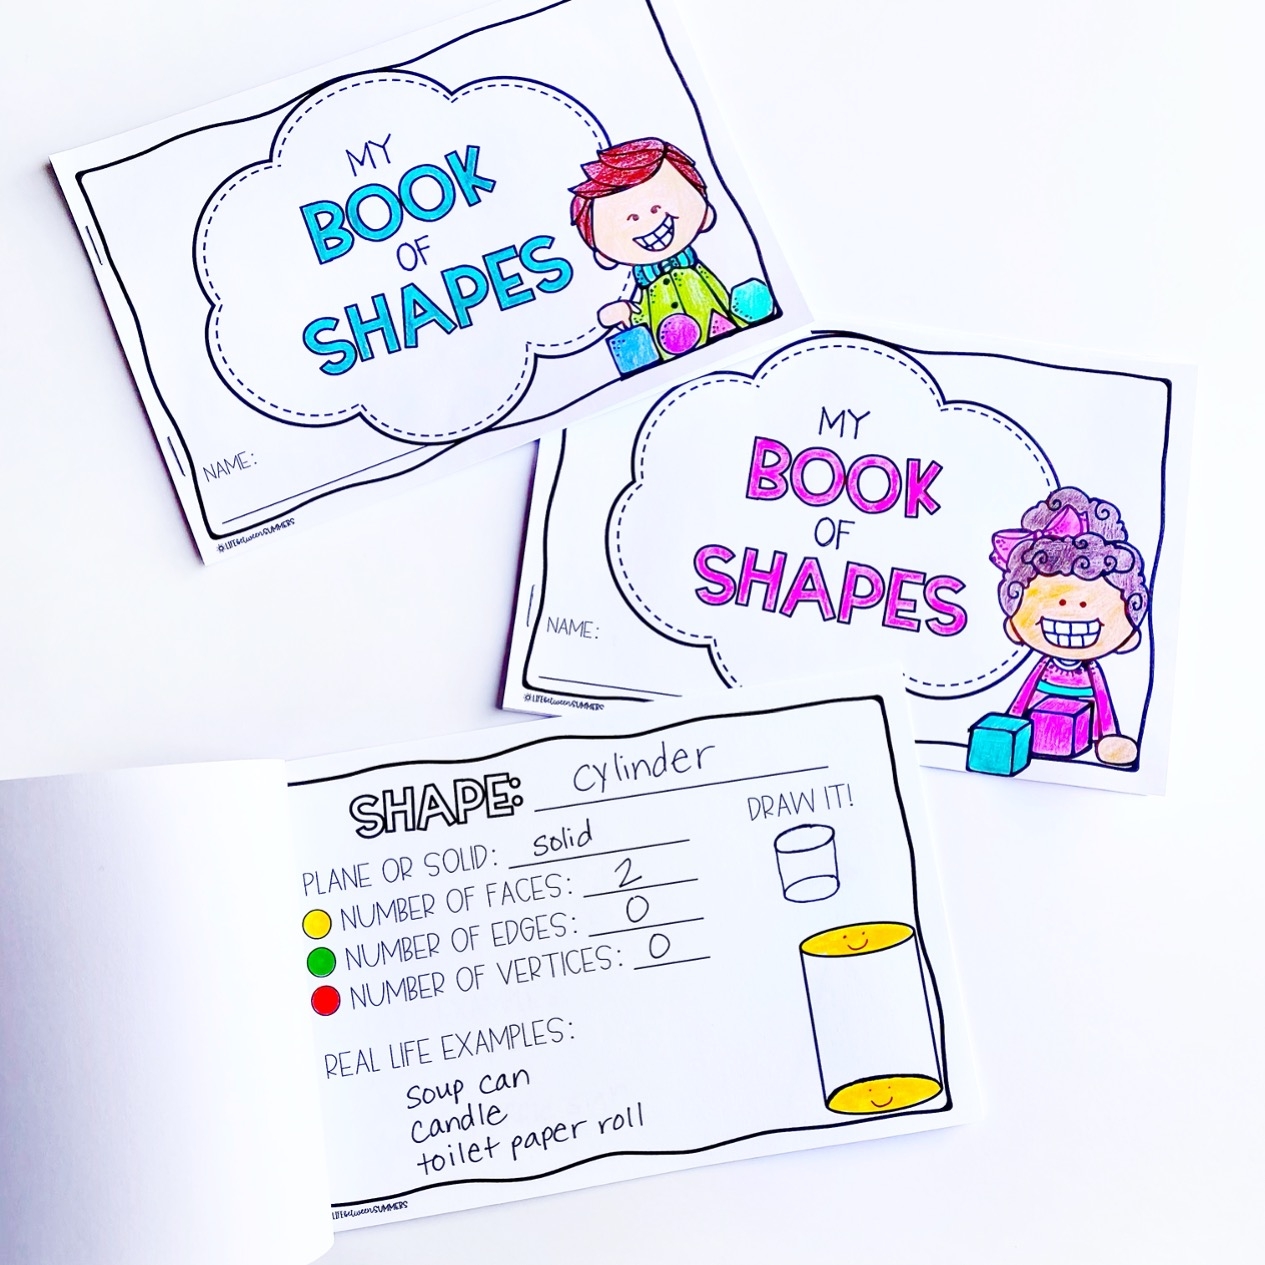 MY
BOOK
OF
SHAPES
NAME:
LIFE between SUMMERS
MY
BOOK
OF
SHAPES
NAME:
LIFE between SUMMERS
SHAPE: cylinder
DRAW IT!
PLANE OR SOLID: solid
NUMBER OF FACES: 2
NUMBER OF EDGES: 0
NUMBER OF VERTICES: 0
REAL LIFE EXAMPLES:
soup can
candle
toilet paper roll
LIFE between SUMMERS